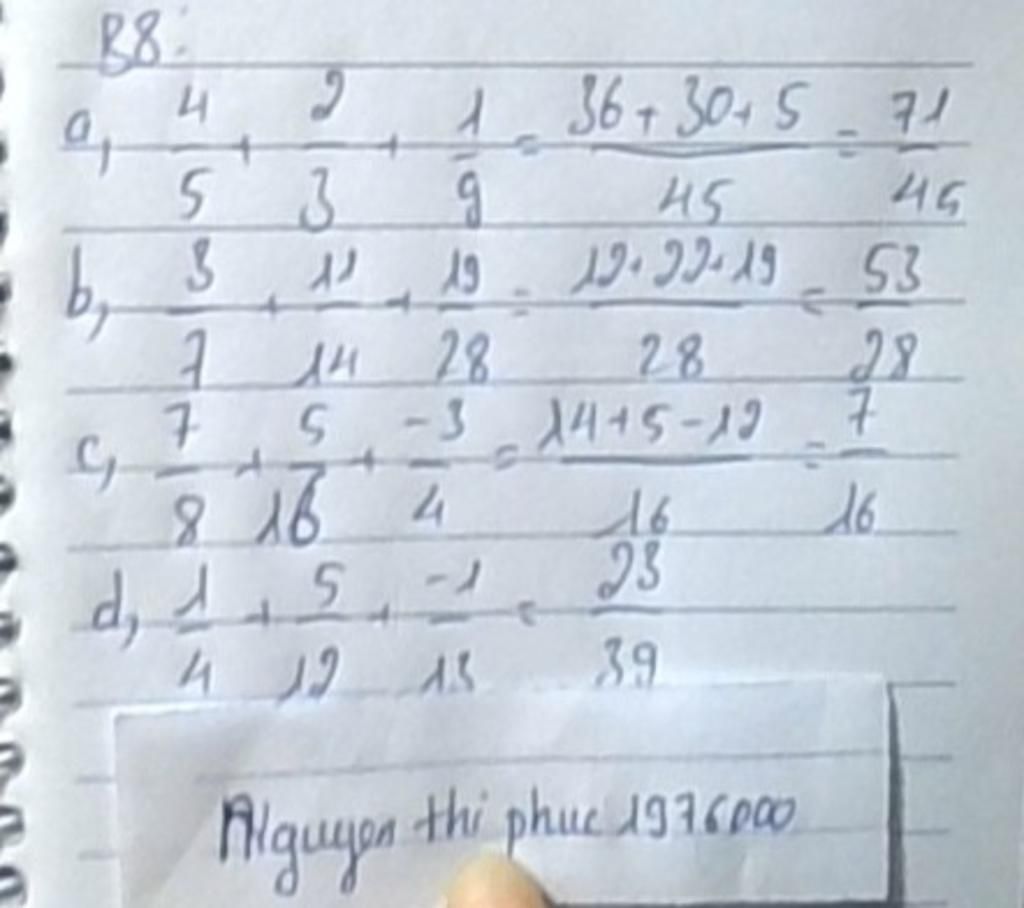 B8:
a, 4/5 + 2/3 + 1/9 = 36+30+5/45 = 71/45
b, 3/7 + 11/14 + 19/28 = 12+22+19/28 = 53/28
c, 7/8 + 5/16 + -3/4 = 14+5-12/16 = 7/16
d, 1/4 + 5/12 + -1/13 = 23/39
Nguyen thi phuc 1976000